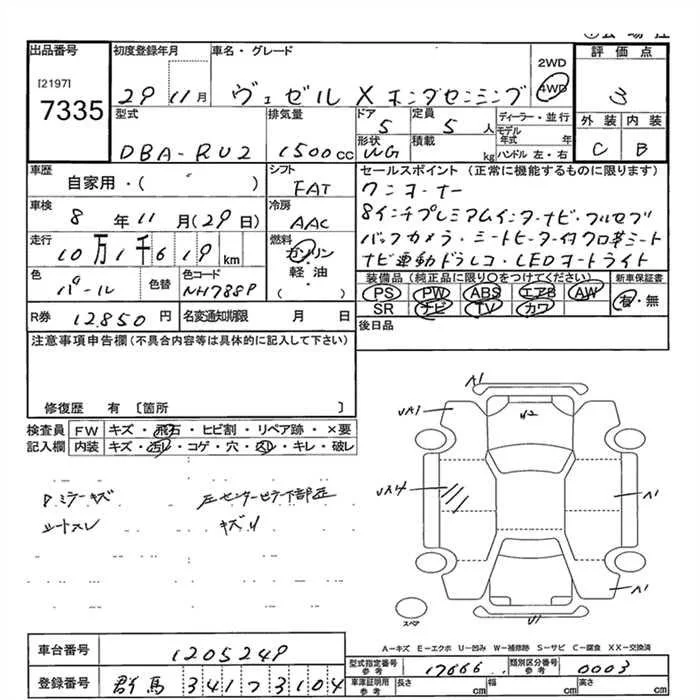 出品番号 初度登録年月 車名・グレード 2WD 評価点
[2197] 29 11月 ヴェゼル X ホンダセンシング 4WD 3
7335
型式 排気量 ドア 定員 ディーラー・並行 外装 内装
DBA-RU2 1500cc 5 5人 モデル年式 年 C B
形状 積載 kg ハンドル 左・右
WG
車歴 シフト セールスポイント(正常に機能するものに限ります)
自家用・( ) FAT ワンオーナー
車検 冷房 8インチプレミアムインターナビ・フルセグ
8年11月(29日) AAC バックカメラ・シートヒーター付クロ革シート
走行 燃料 ナビ連動ドラレコ・LEDオートライト
10万1千619km ガソリン
軽油・( )
色 色替 色コード 装備品(純正品に限り○をつけてください) 新車保証書
パール NH788P PS PW ABS エアB AW 有・無
SR ナビ TV カワ
R券 12,850円 名変通知期限 月 日 後日品
注意事項申告欄(不具合内容等は具体的に記入して下さい)
修復歴 有 [箇所 ]
検査員 FW キズ・飛石・ヒビ割・リペア跡・×要
記入欄 内装 キズ・汚レ・コゲ・穴・スレ・キレ・破レ
ミラーキズ
シートスレ
左センターピラー下部
キズ
A1
UA1
W2
A1
A1
U1
スペア
A-キズ E-エクボ U-凹み W-補修跡 S-サビ C-腐食 XX-交換済
車台番号 1205249 型式指定番号 参考 17666 類別区分番号 参考 0003
登録番号 群馬 341つ3104 車庫証明用 参考 長さ cm 幅 cm 高さ cm